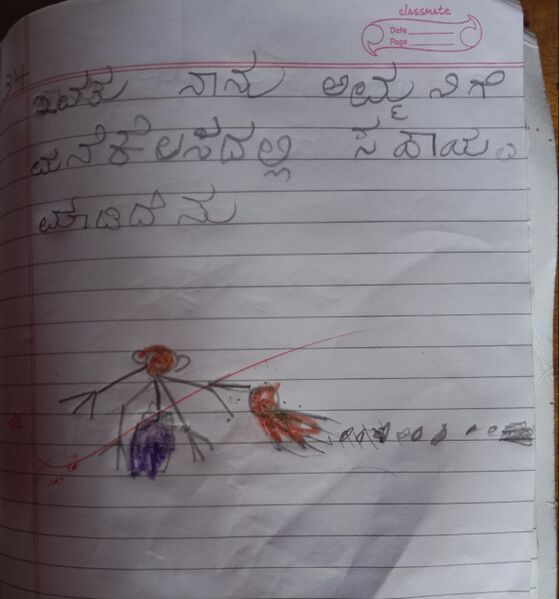 classmate
Date
Page
34
ಇವತು ನಾನು ಅಮ್ಮನಿಗೆ
ಮನೆಕೆಲಸದಲ್ಲಿ ಸಹಾಯ
ಮಾಡಿದೆನು